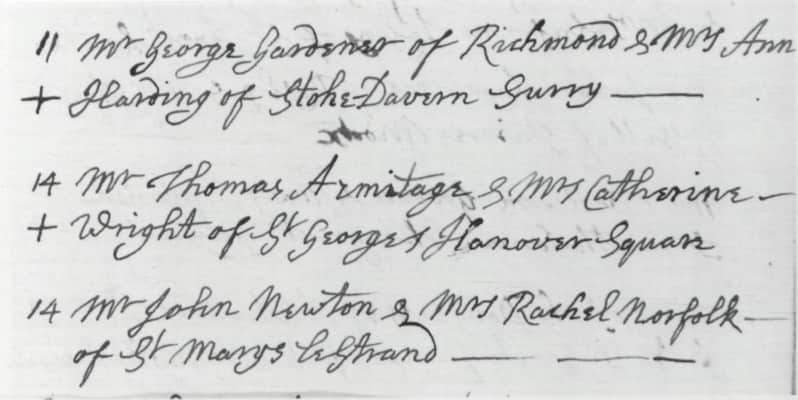 11 Mr George Gardener of Richmond & Mrs Ann
+ Harding of Stoke Davern Surry —
14 Mr Thomas Armitage & Mrs Catherine –
+ Wright of St Georges Hanover Square
14 Mr John Newton & Mrs Rachel Norfolk —
of St Marys LeStrand — — —